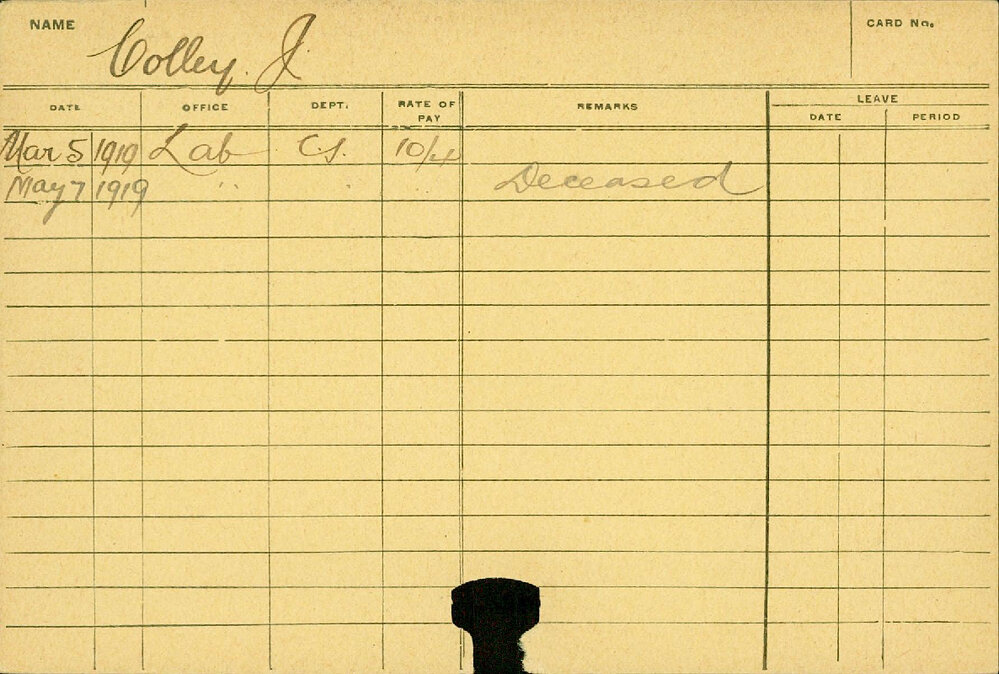 NAME Colley. J. CARD No.
DATE OFFICE DEPT. RATE OF PAY REMARKS LEAVE
DATE PERIOD
Mar 5 1919 Lab C.S. 10/4
May 7 1919 " " Deceased